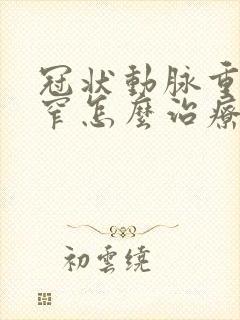 冠状動脉重
窄怎麼治療
初雲繞